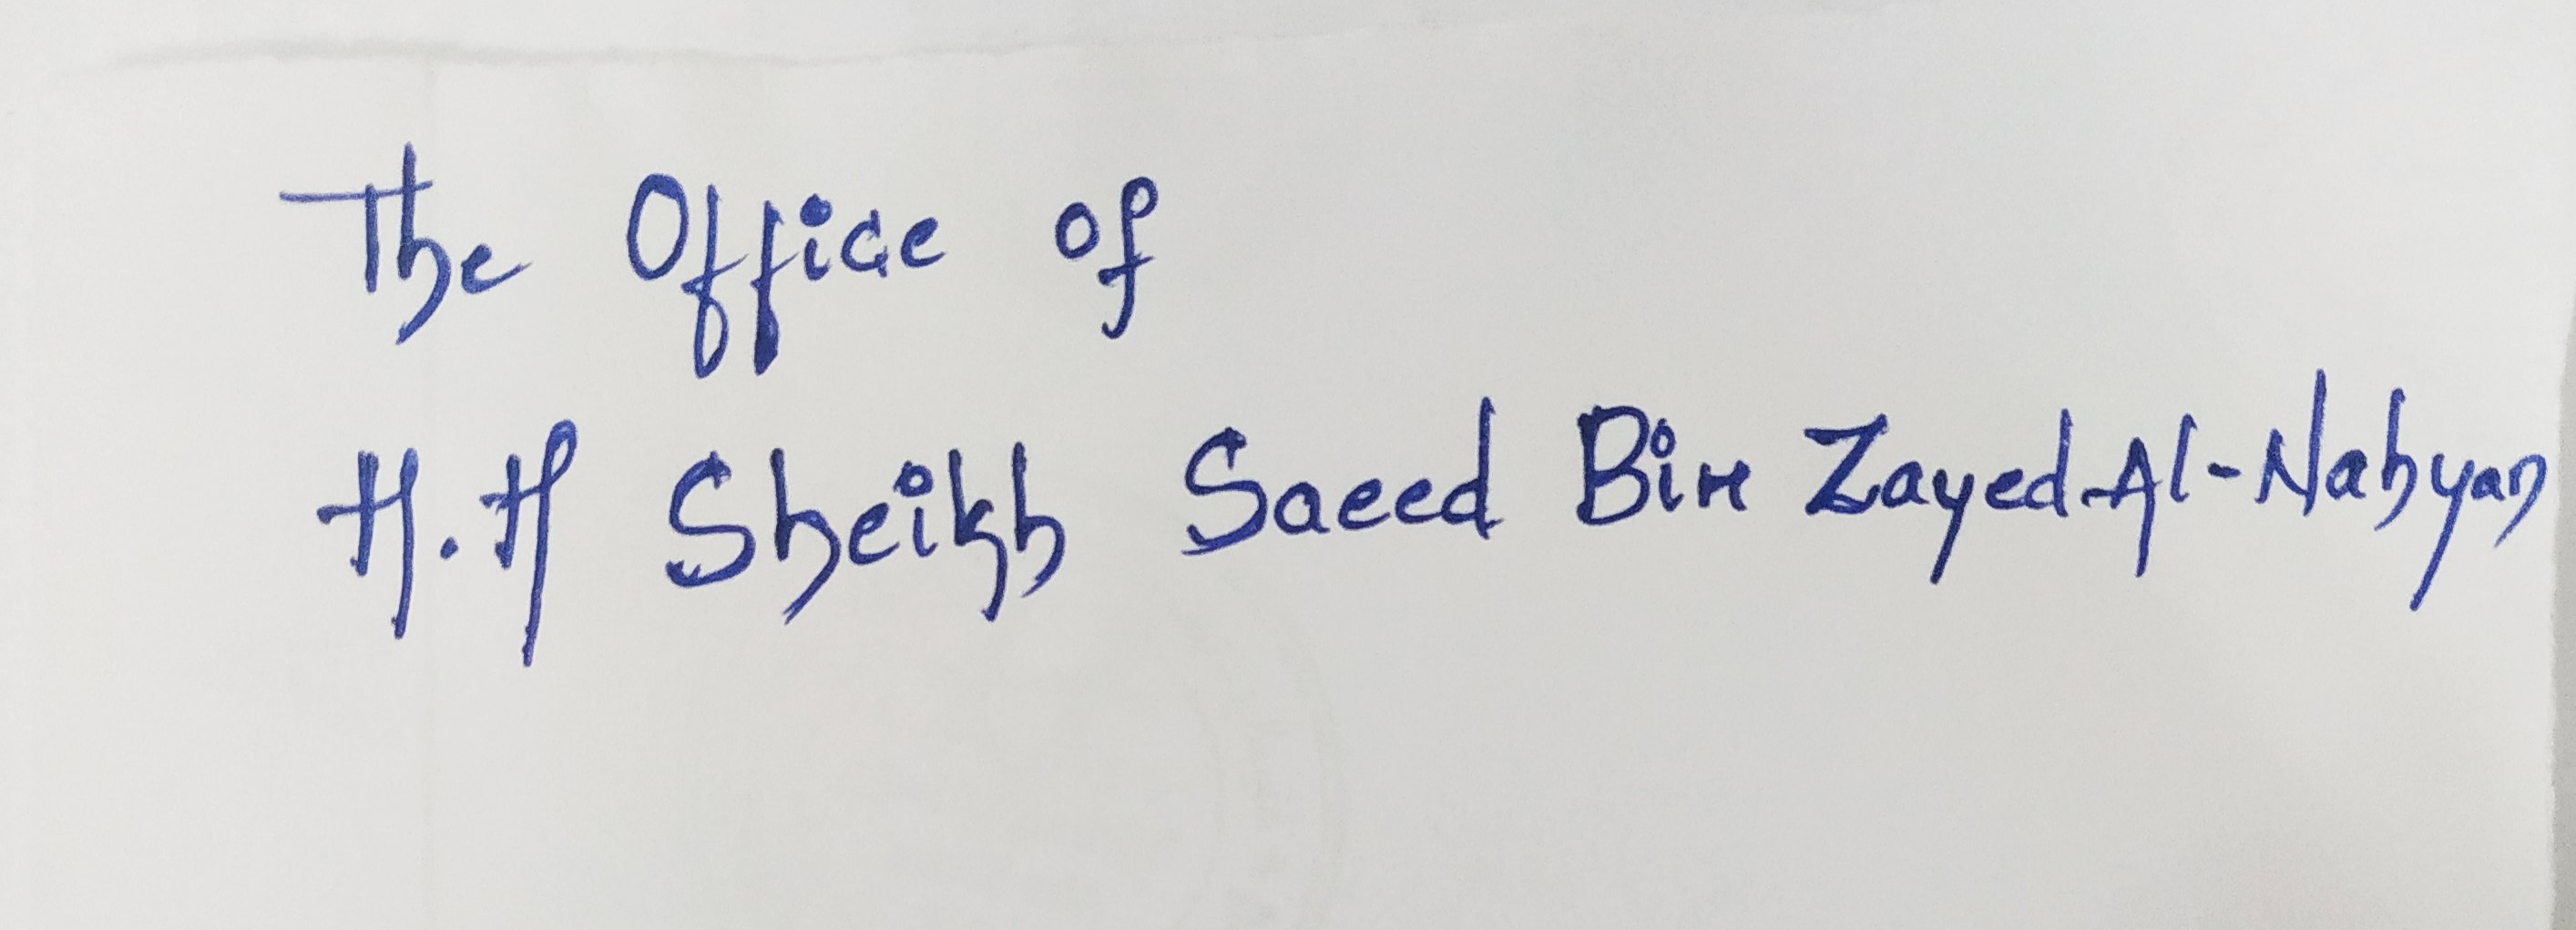 The Office of
H.H Sheikh Saeed Bin Zayed Al-Nahyan